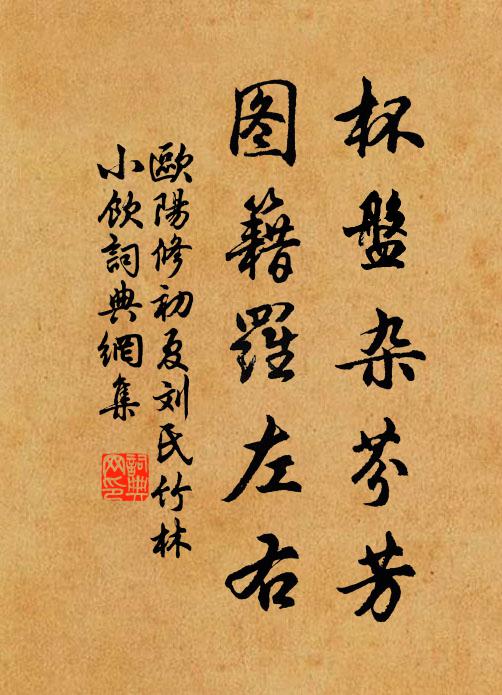 杯盤杂芬芳
图籍羅左右
歐陽修初夏刘氏竹林
小飲詞典網集
詞典
网印